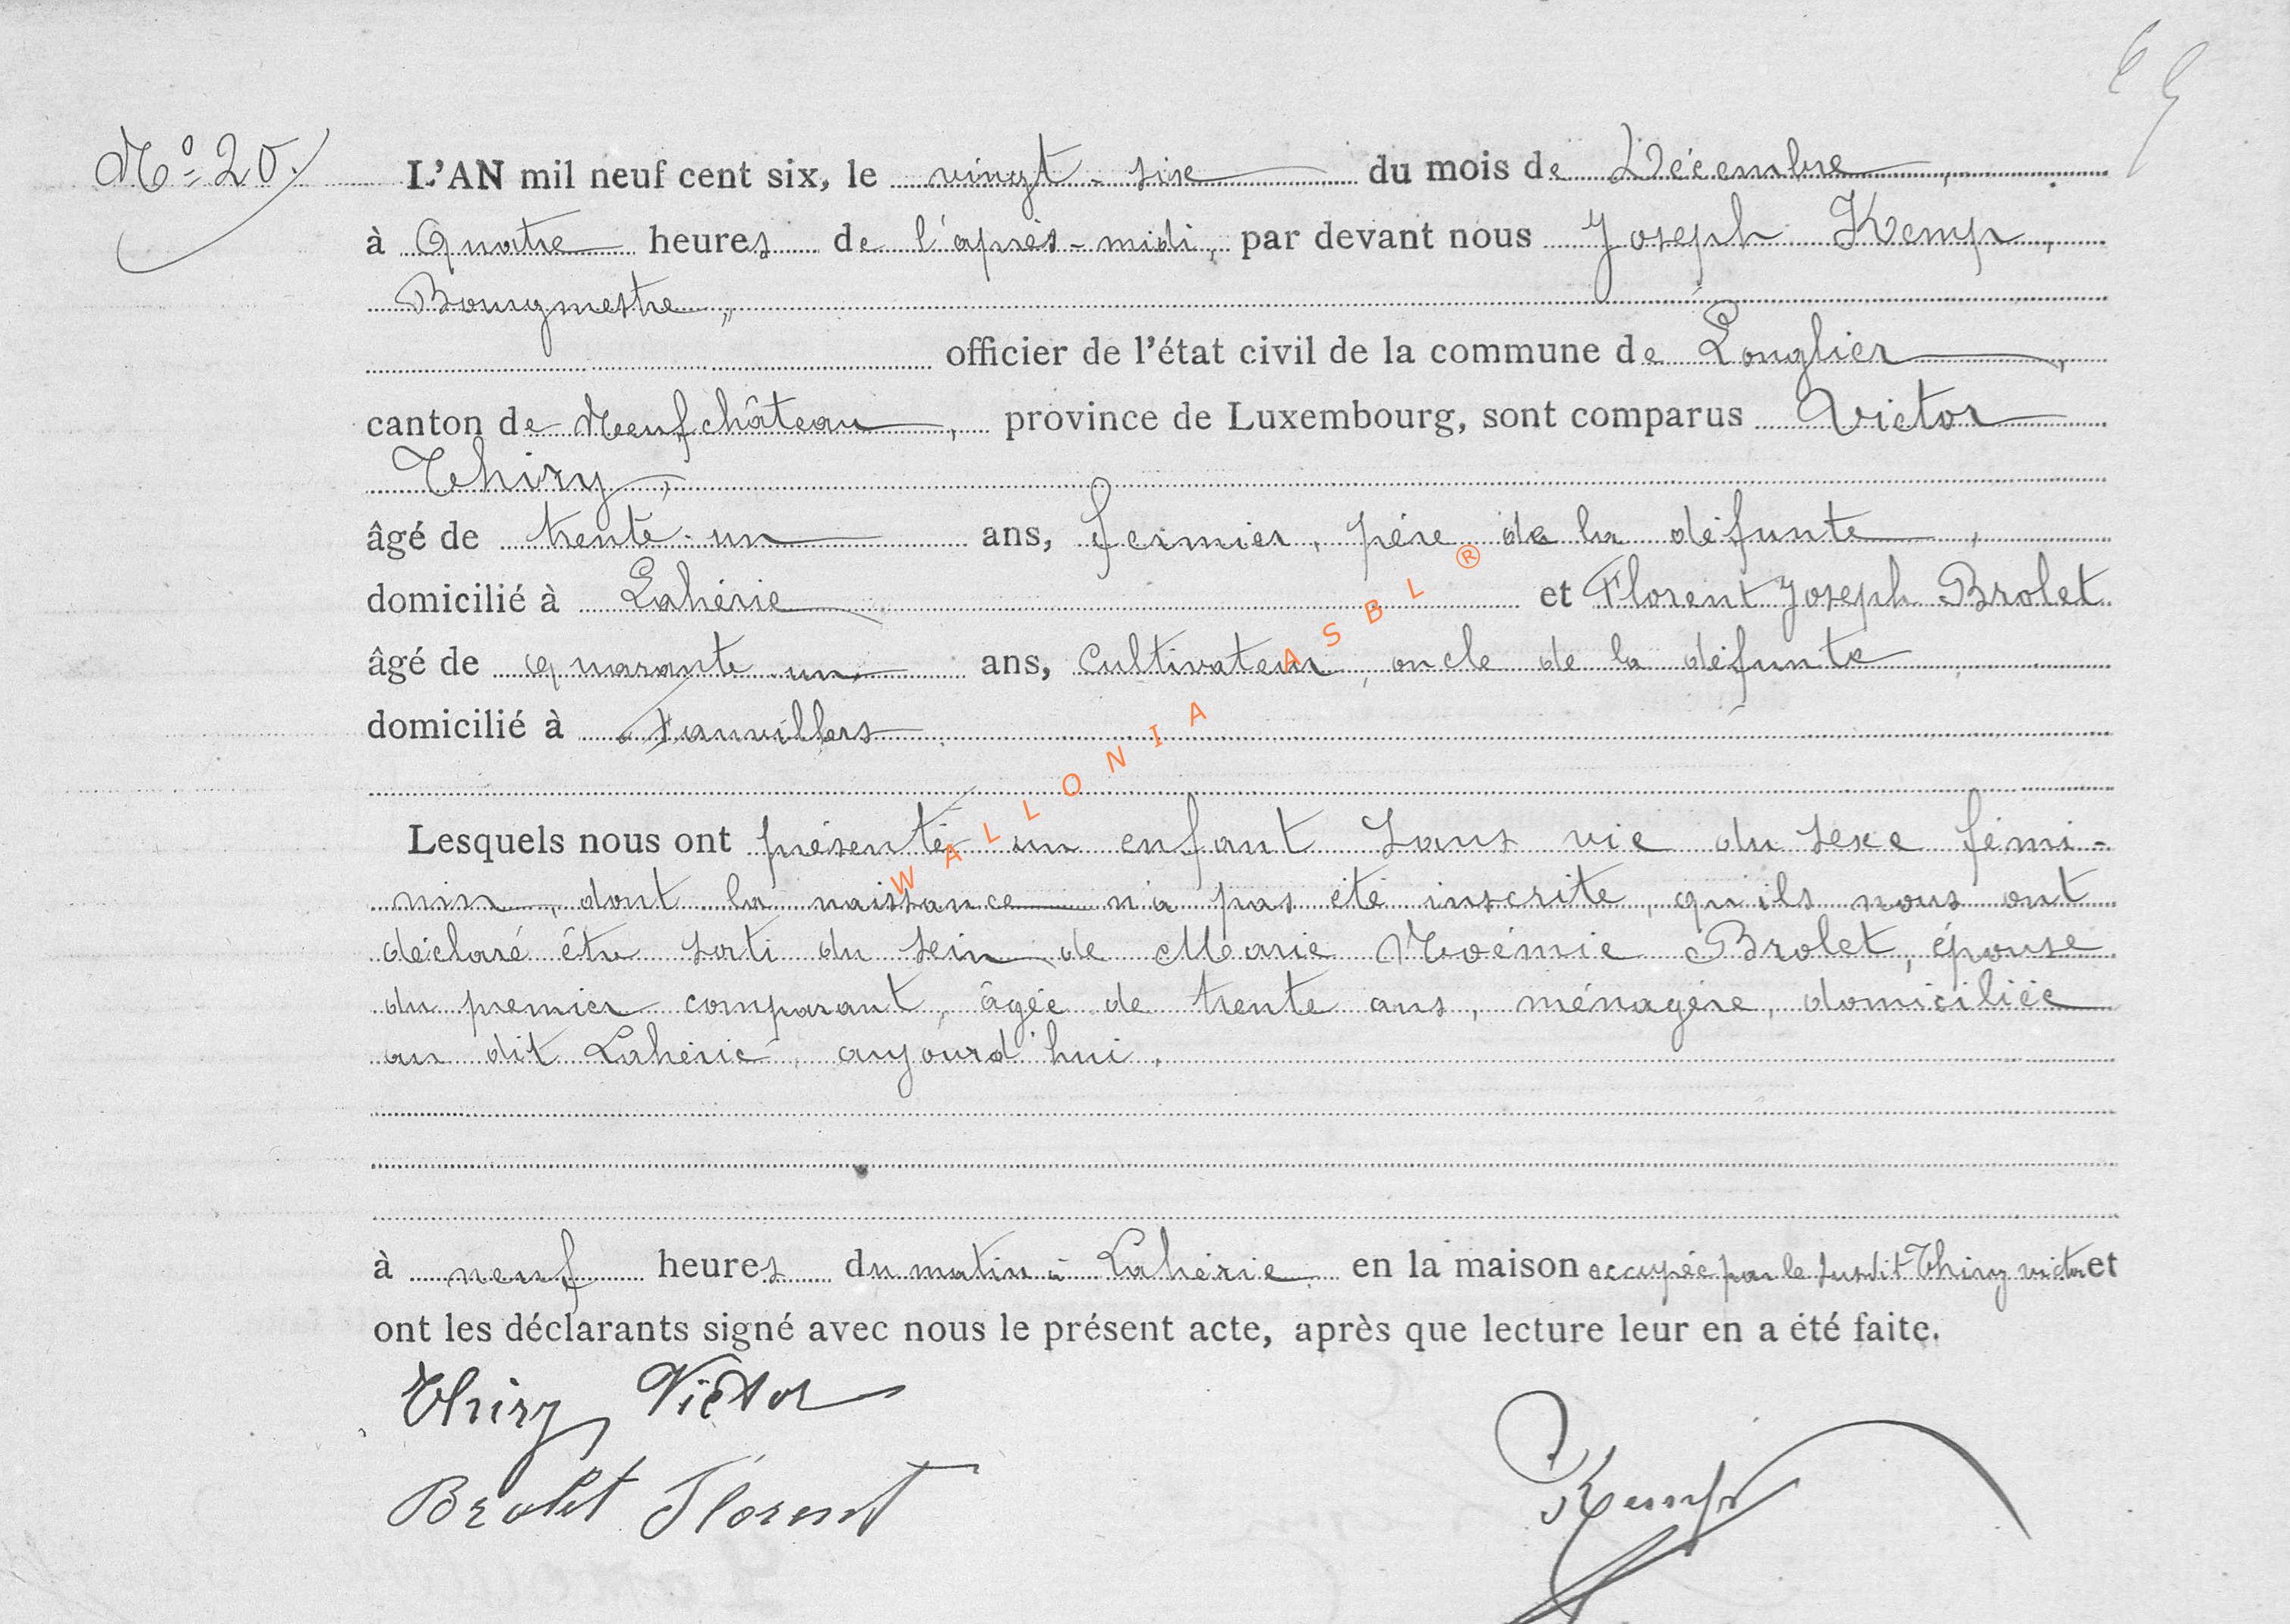 Nº 20.
L'AN mil neuf cent six, le vingt-six du mois de Décembre,
à Quatre heures de l'après-midi, par devant nous Joseph Kemp,
Bourgmestre,
officier de l'état civil de la commune de Longlier,
canton de Neufchâteau, province de Luxembourg, sont comparus Victor
Thiry,
âgé de trente-un ans, fermier, père de la défunte,
domicilié à Lahérie et Florent Joseph Brolet
âgé de quarante un ans, cultivateur, oncle de la défunte,
domicilié à Fauvillers
Lesquels nous ont présenté un enfant sans vie du sexe fémi-
nin, dont la naissance n'a pas été inscrite, qu'ils nous ont
déclaré être sorti du sein de Marie Noémie Brolet, épouse
du premier comparant, âgée de trente ans, ménagère, domiciliée
au dit Lahérie, aujourd'hui,
à neuf heures du matin à Lahérie en la maison occupée par le susdit Thiry victor et
ont les déclarants signé avec nous le présent acte, après que lecture leur en a été faite.
Thiry Victor
Brolet Florent
Kemp
WALLONIA ASBL ®